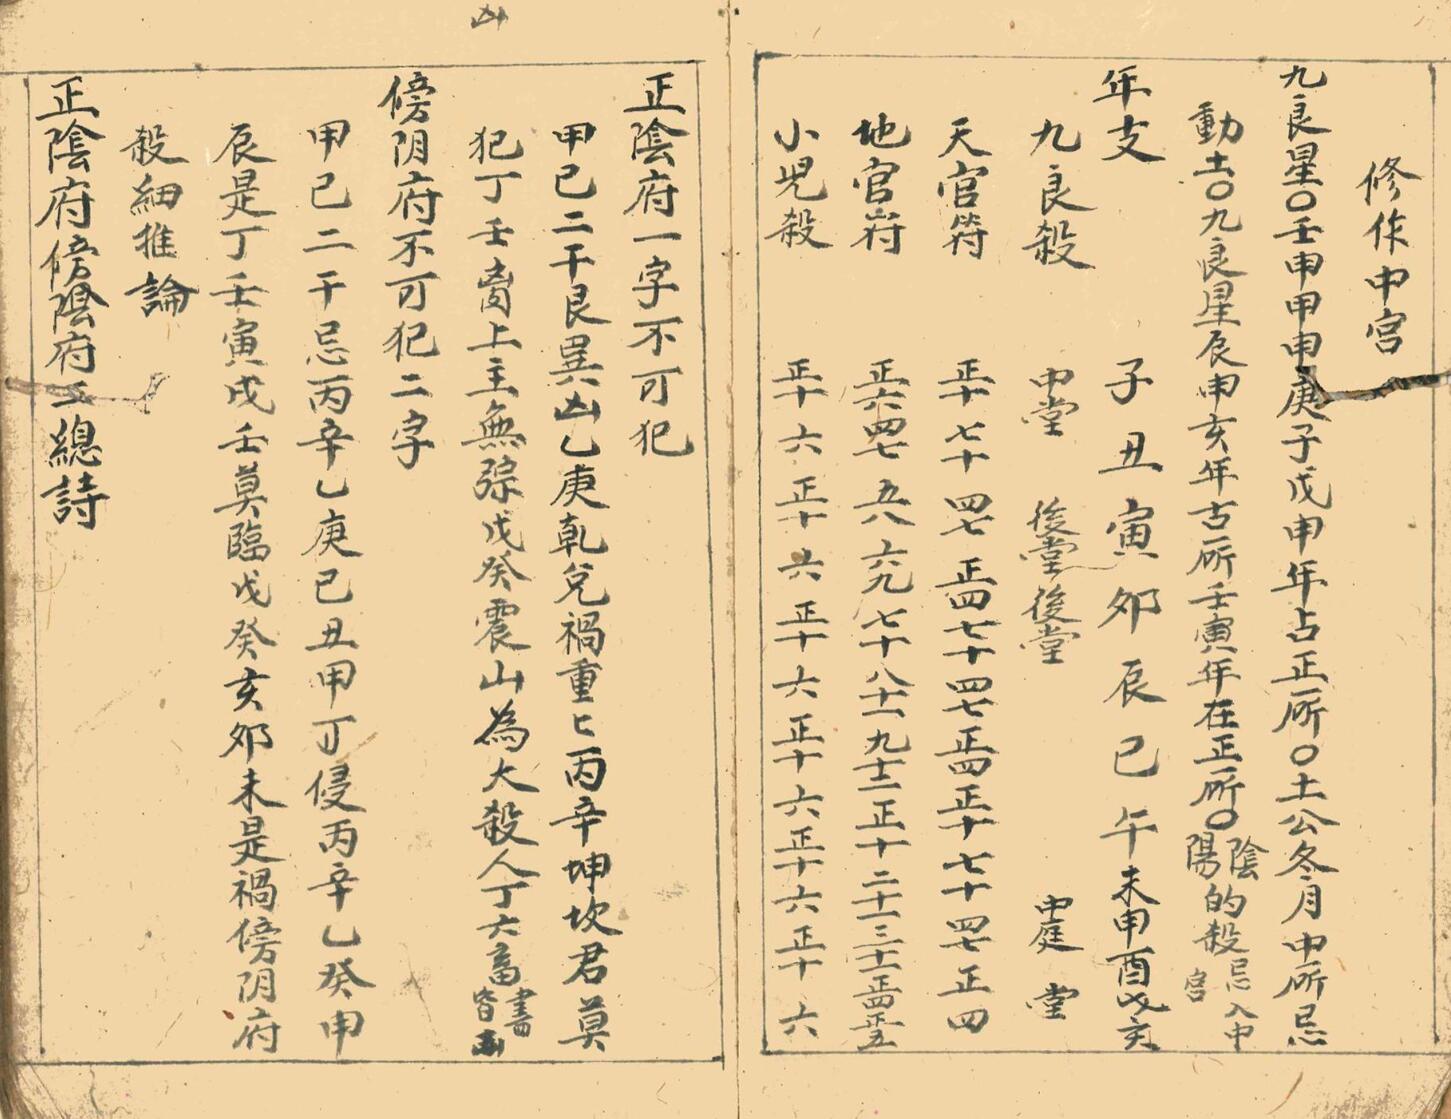 修作中宮
九良星〇壬申甲申庚子戊申年占正所〇土公冬月中所忌
動土〇九良星辰申亥年古所壬寅年在正所〇陰陽的殺忌入中宮
年支 子丑寅卯辰巳午未申酉戌亥
九良殺 中堂 後堂 後堂 中庭 堂
天官符 正十 七十 四七 正四 七十 四七 正四 正十 七十 四七 正四
地官符 正六 四七 五八 六九 七十 八十一 九十二 正十 二十一 三十二 正四 正五
小児殺 正十 六 正十 六 正十 六 正十 六 正十 六 正十 六
凶
正陰府一字不可犯
甲己二干艮巽凶乙庚乾兌禍重七丙辛坤坎君莫
犯丁壬离上主無踪戊癸震山為大殺人丁六畜皆
傍阴府不可犯二字
甲己二干忌丙辛乙庚己丑甲丁侵丙辛乙癸申
辰是丁壬寅戌壬莫臨戊癸亥卯未是禍傍阴府
殺細推論
正陰府傍陰府總詩